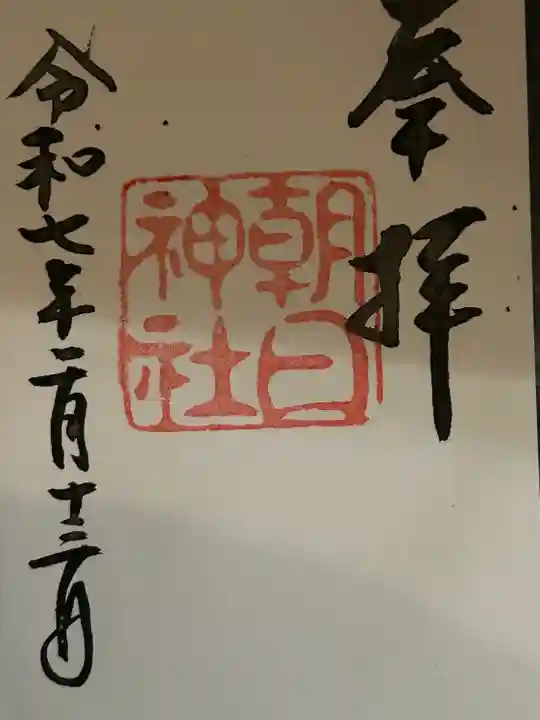 奉拝
朝日
神社
令和七年二月十三日